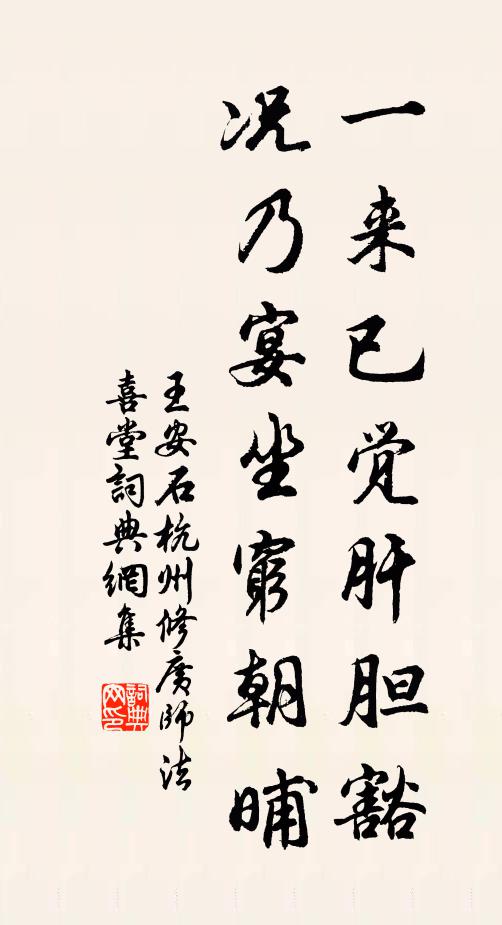 一来已觉肝胆豁
况乃宴坐窮朝晡
王安石杭州修廣師法
喜堂詞典網集
詞典
网印